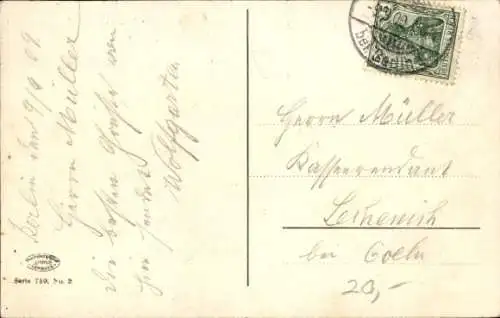 Berlin den 9/4 09.
Herrn Müller
Die besten Grüße von
hier sendet
Wolfgarten
Herrn Müller
Kassenrendant
Lechenich
bei Coeln
20,-
Serie 789. No. 2